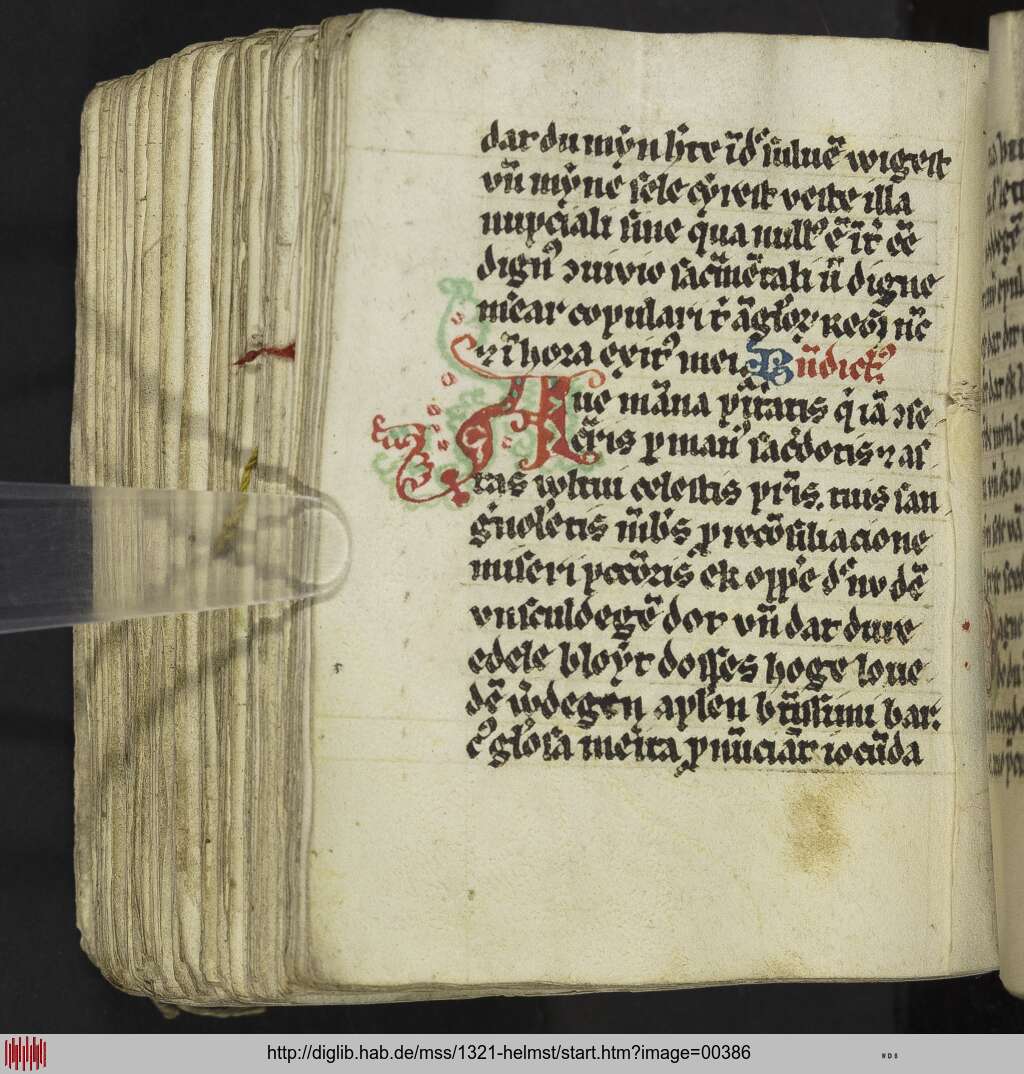 dar du myn h'te īd' sulue wigest
vn̄ myne sele cyrest veste illa
nupciali sine qua null' ē īt' ēe
dign' ɔuiuio sacm̄etali ū digne
m'ear copulari t' āglor' regi nc̄
⁊ ī hora exit' mei Bn̄dict'
Aue māna p'itatis q' iā ɔse
cr̄is p man' sac'dotis ⁊ as
tas vultui celestis pr̄is. tuis san
guolētis mēbs p recōsiliacione
miseri pctōris ek oppe d' nv dē
vnsculdegē dot vn̄ dat dure
edele bloyt dosses hoge loue
dē w'degen aplen btīssimi bar.
t' glosa merita p nūciār iocūda
http://diglib.hab.de/mss/1321-helmst/start.htm?image=00386